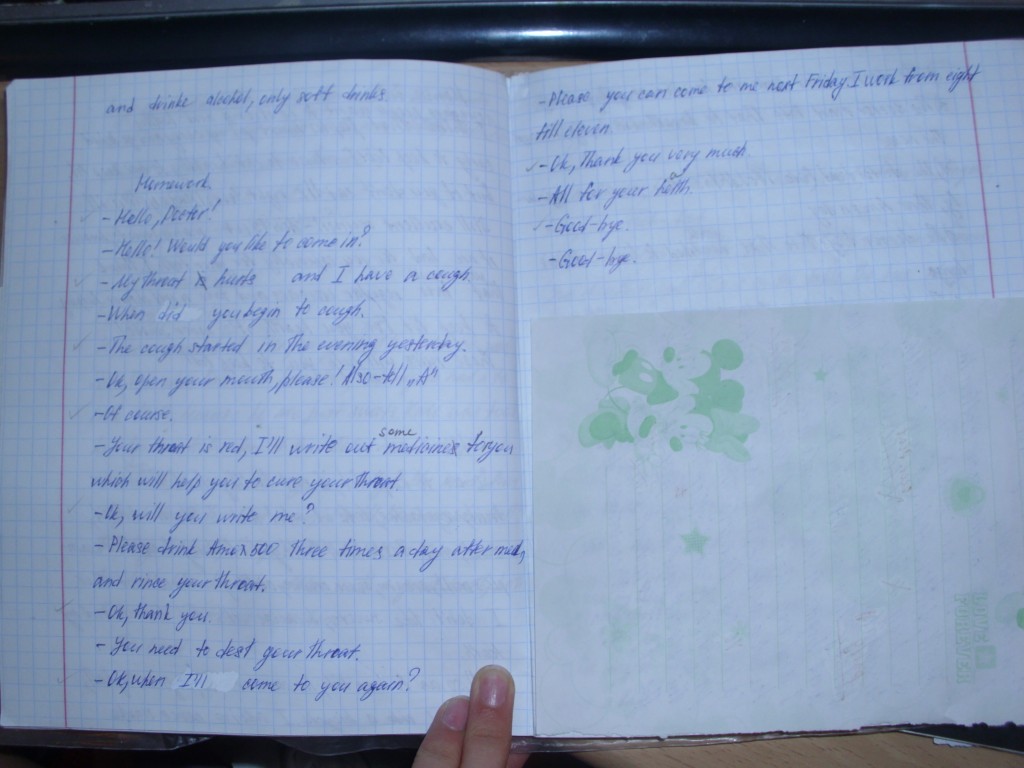 and drinke alcohol, only soft drinks.
Homework.
- Hello, Doctor!
- Hello! Would you like to come in?
- My throat hurts and I have a cough.
- When did you begin to cough.
- The cough started in the evening yesterday.
- Ok, open your mouth, please! Also - tell „A"
- Of course.
- Your throat is red, I'll write out some medicines for you
which will help you to cure your throat.
- Ok, will you write me?
- Please drink Amox500 three times a day after meal,
and rinse your throat.
- Ok, thank you.
- You need to your throat.
- Ok, when I'll come to you again?
- Please, you can come to me next Friday. I work from eight
till eleven.
- Ok, Thank you very much.
- All for your helth.
- Good-bye.
- Good-bye.